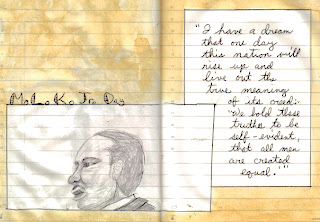 M. L. K. Jr. Day
"I have a dream
that one day
this nation will
rise up and
live out the
true meaning
of its creed:
"We hold these
truths to be
self-evident,
that all men
are created
equal."